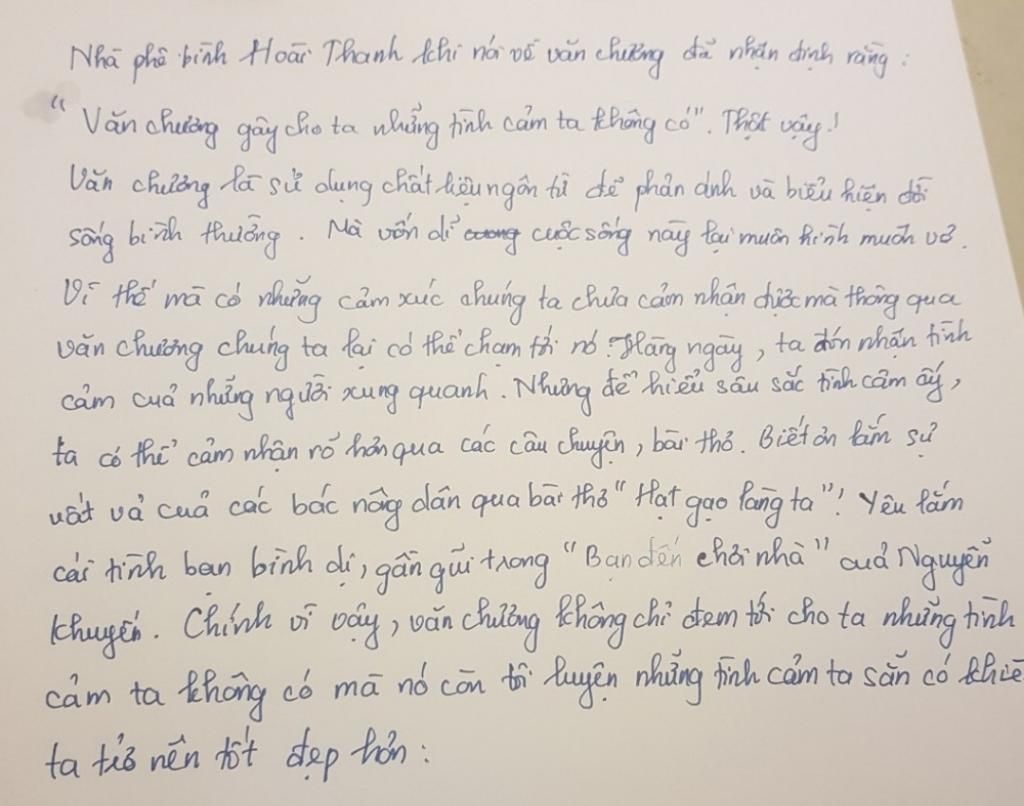 Nhà phê bình Hoài Thanh khi nói về văn chương đã nhận định rằng :
"Văn chương gây cho ta những tình cảm ta không có". Thật vậy!
Văn chương là sử dụng chất liệu ngôn từ để phản ánh và biểu hiện đời
sống bình thường. Mà vốn dĩ cuộc sống này lại muôn hình muôn vẻ.
Vì thế mà có những cảm xúc chúng ta chưa cảm nhận được mà thông qua
văn chương chúng ta lại có thể chạm tới nó. Hàng ngày, ta đón nhận tình
cảm của những người xung quanh. Nhưng để hiểu sâu sắc tình cảm ấy,
ta có thể cảm nhận rõ hơn qua các câu chuyện, bài thơ. Biết ơn lắm sự
vất vả của các bác nông dân qua bài thơ "Hạt gạo làng ta"! Yêu lắm
cái tình bạn bình dị, gần gũi trong "Bạn đến chơi nhà" của Nguyễn
Khuyến. Chính vì vậy, văn chương không chỉ đem tới cho ta những tình
cảm ta không có mà nó còn tôi luyện những tình cảm ta sẵn có khiế
ta trở nên tốt đẹp hơn.